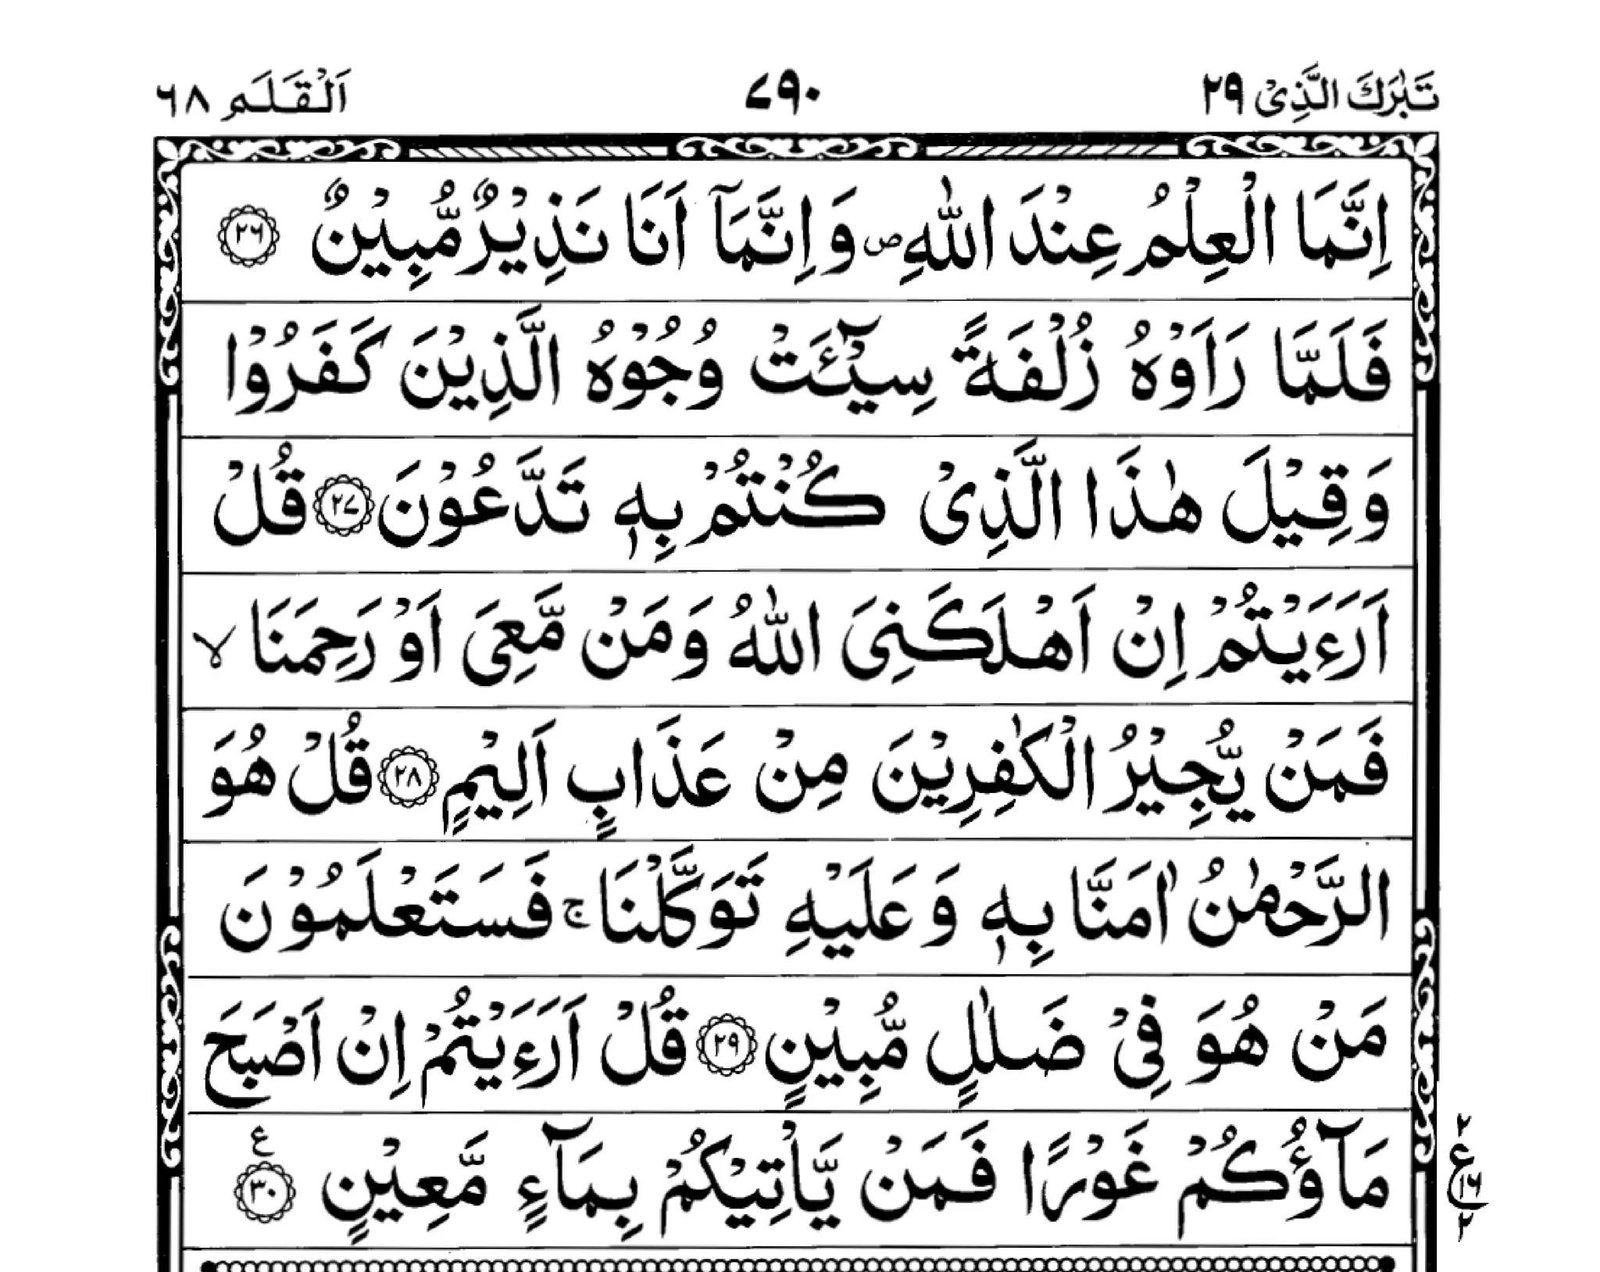 تَبٰرَكَ الَّذِیْ ٢٩ ٧٩٠ اَلْقَلَم ٦٨
اِنَّمَا الْعِلْمُ عِنْدَ اللّٰهِ ۪ وَ اِنَّمَاۤ اَنَا نَذِیْرٌ مُّبِیْنٌ ﴿٢٦﴾
فَلَمَّا رَاَوْهُ زُلْفَةً سِیْٓـَٔتْ وُجُوْهُ الَّذِیْنَ كَفَرُوْا
وَ قِیْلَ هٰذَا الَّذِیْ كُنْتُمْ بِهٖ تَدَّعُوْنَ ﴿٢٧﴾ قُلْ
اَرَءَیْتُمْ اِنْ اَهْلَكَنِیَ اللّٰهُ وَ مَنْ مَّعِیَ اَوْ رَحِمَنَا ۙ
فَمَنْ یُّجِیْرُ الْكٰفِرِیْنَ مِنْ عَذَابٍ اَلِیْمٍ ﴿٢٨﴾ قُلْ هُوَ
الرَّحْمٰنُ اٰمَنَّا بِهٖ وَ عَلَیْهِ تَوَكَّلْنَا ۚ فَسَتَعْلَمُوْنَ
مَنْ هُوَ فِیْ ضَلٰلٍ مُّبِیْنٍ ﴿٢٩﴾ قُلْ اَرَءَیْتُمْ اِنْ اَصْبَحَ
مَآؤُكُمْ غَوْرًا فَمَنْ یَّاْتِیْكُمْ بِمَآءٍ مَّعِیْنٍ ﴿٣٠﴾ ع
٢
ع
١٦
٢